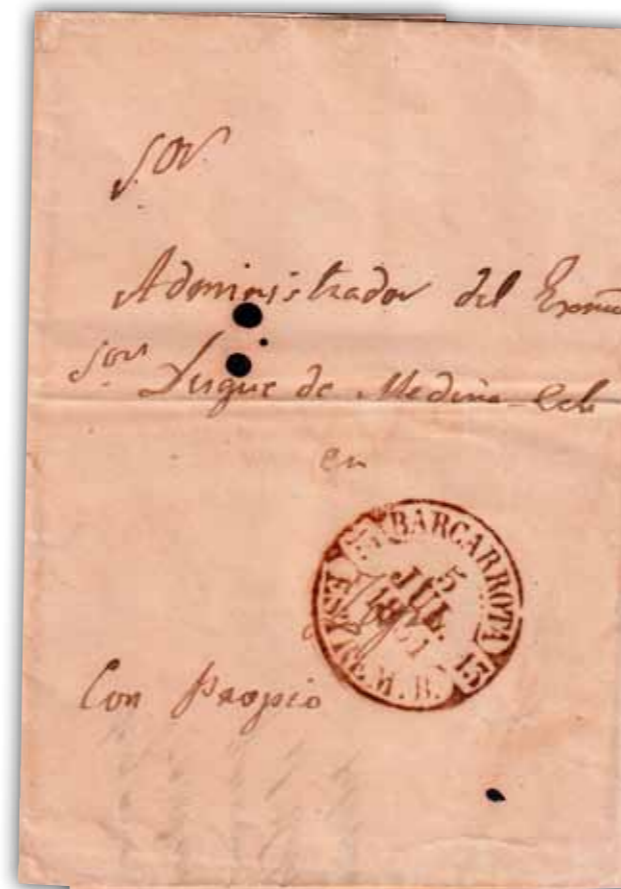 Sor.
Administrador del Exmo
Sor. Duque de Medina-Celi
en
BARCARROTA
5
JUL.
Con Propio